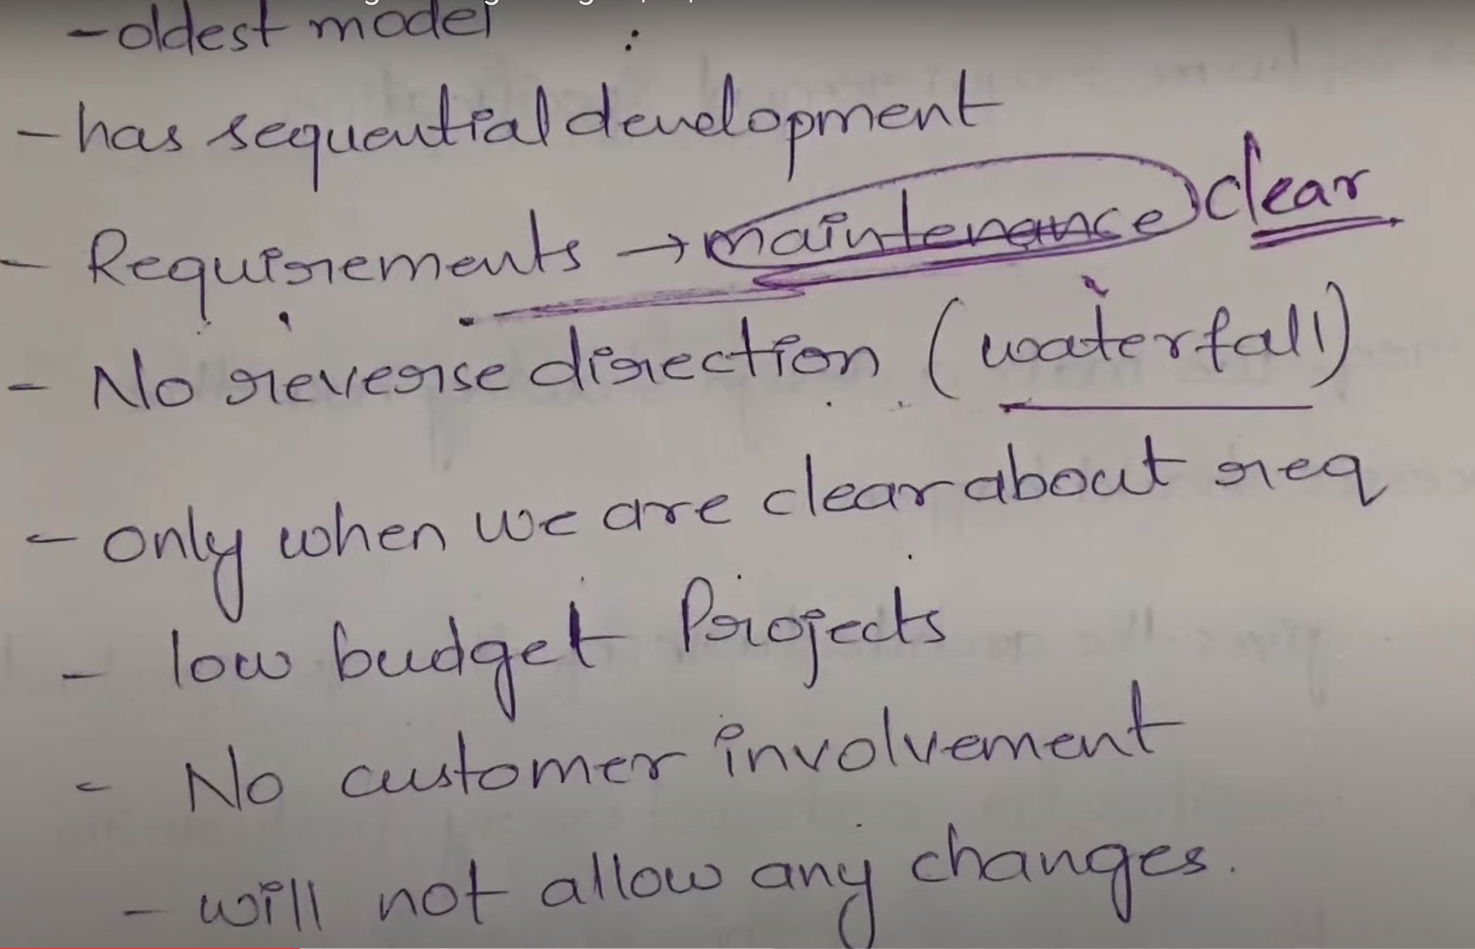 - oldest model
- has sequential development
- Requirements → maintenance clear
- No reverse direction (waterfall)
- only when we are clear about req
- low budget Projects
- No customer involvement
- will not allow any changes.